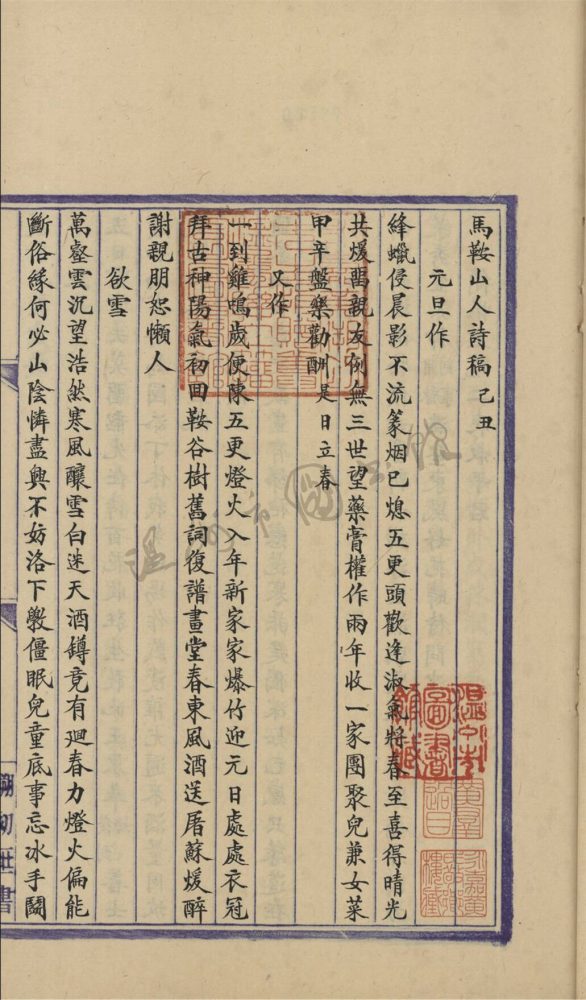 馬鞍山人詩稿己丑
元旦作
絳蠟侵晨影不流篆烟已熄五更頭歡逢淑氣將春至喜得晴光
共煖畱親友例無三世望藥膏權作兩年收一家團聚兒兼女菜
甲辛盤樂勸酬是日立春
又作
一到雞鳴歲便陳五更燈火入年新家家爆竹迎元日處處衣冠
拜古神陽氣初回鞍谷樹舊詞復譜畫堂春東風酒送屠蘇煖醉
謝親朋恕懶人
欲雪
萬壑雲沉望浩然寒風釀雪白迷天酒罇竟有迴春力燈火偏能
斷俗緣何必山陰憐盡興不妨洛下斆僵眠兒童底事忘冰手鬪
温州市圖書館